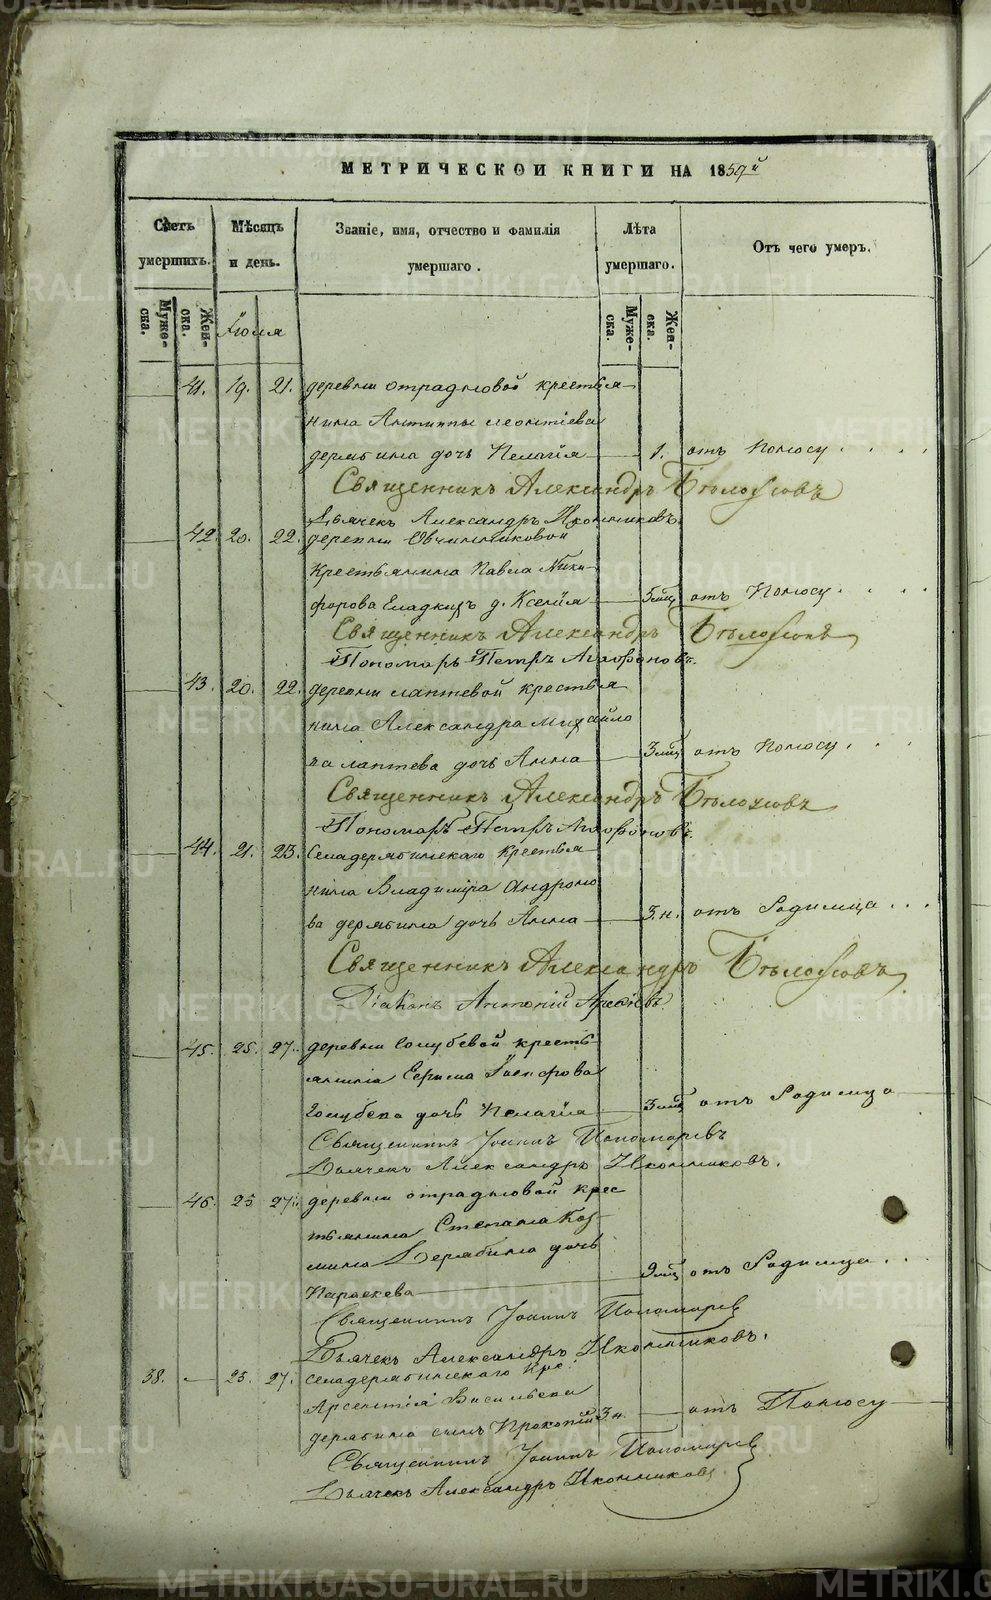 МЕТРИЧЕСКОИ КНИГИ НА 1859й
Счетъ умершихъ.
Мѣсяцъ и день.
Званіе, имя, отчество и фамилія умершаго.
Лѣта умершаго.
Отъ чего умеръ.
Муже-ска.
Жен-ска.
Іюля
Муже-ска.
Жен-ска.
41. 19. 21. деревни отрадновой крестья
нина Антипы леонтіева
дерябина дочь Пелагія 1. отъ Поносу . . . .
Священникъ Александръ Бѣлоусовъ
Дьячекъ Александръ Иконниковъ
42. 20. 22. деревни Овчинниковой
крестьянина Павла Ники-
форова Гладкихъ д. Ксенія 5мцъ отъ Поносу . . . .
Священникъ Александръ Бѣлоусовъ
Пономарь Петръ Агафоновъ.
43. 20. 22. деревни лаптевой крестья
нина Александра михайло
ва лаптева дочь Анна 3мцъ отъ Поносу . . .
Священникъ Александръ Бѣлоусовъ
Пономарь Петръ Агафоновъ
44. 21. 23. села дерябинскаго крестья
нина Владиміра андроно
ва дерябина дочь Анна 3.н. отъ Родимца . . .
Священникъ Александръ Бѣлоусовъ
Діаконъ Антоній
45. 25. 27. деревни Голубевой кресть-
янина
Голубева дочь Пелагія 3мцъ отъ Родимца
Священникъ Іоаннъ Пономаревъ
Дьячекъ Александръ Иконниковъ.
46. 25 27. деревни отрадновой крес
тьянина Степана Коз-
мина Дерябина дочь
Параскева 9мцъ отъ Родимца . .
Священникъ Іоаннъ Пономаревъ
Дьячекъ Александръ Иконниковъ.
38. 25. 27. села дерябинскаго крес:
Арсентія Васильева
дерябина сынъ Прокопій 3н. отъ Поносу
Священникъ Іоаннъ Пономаревъ
Дьячекъ Александръ Иконниковъ
METRIKI.GASO-URAL.RU